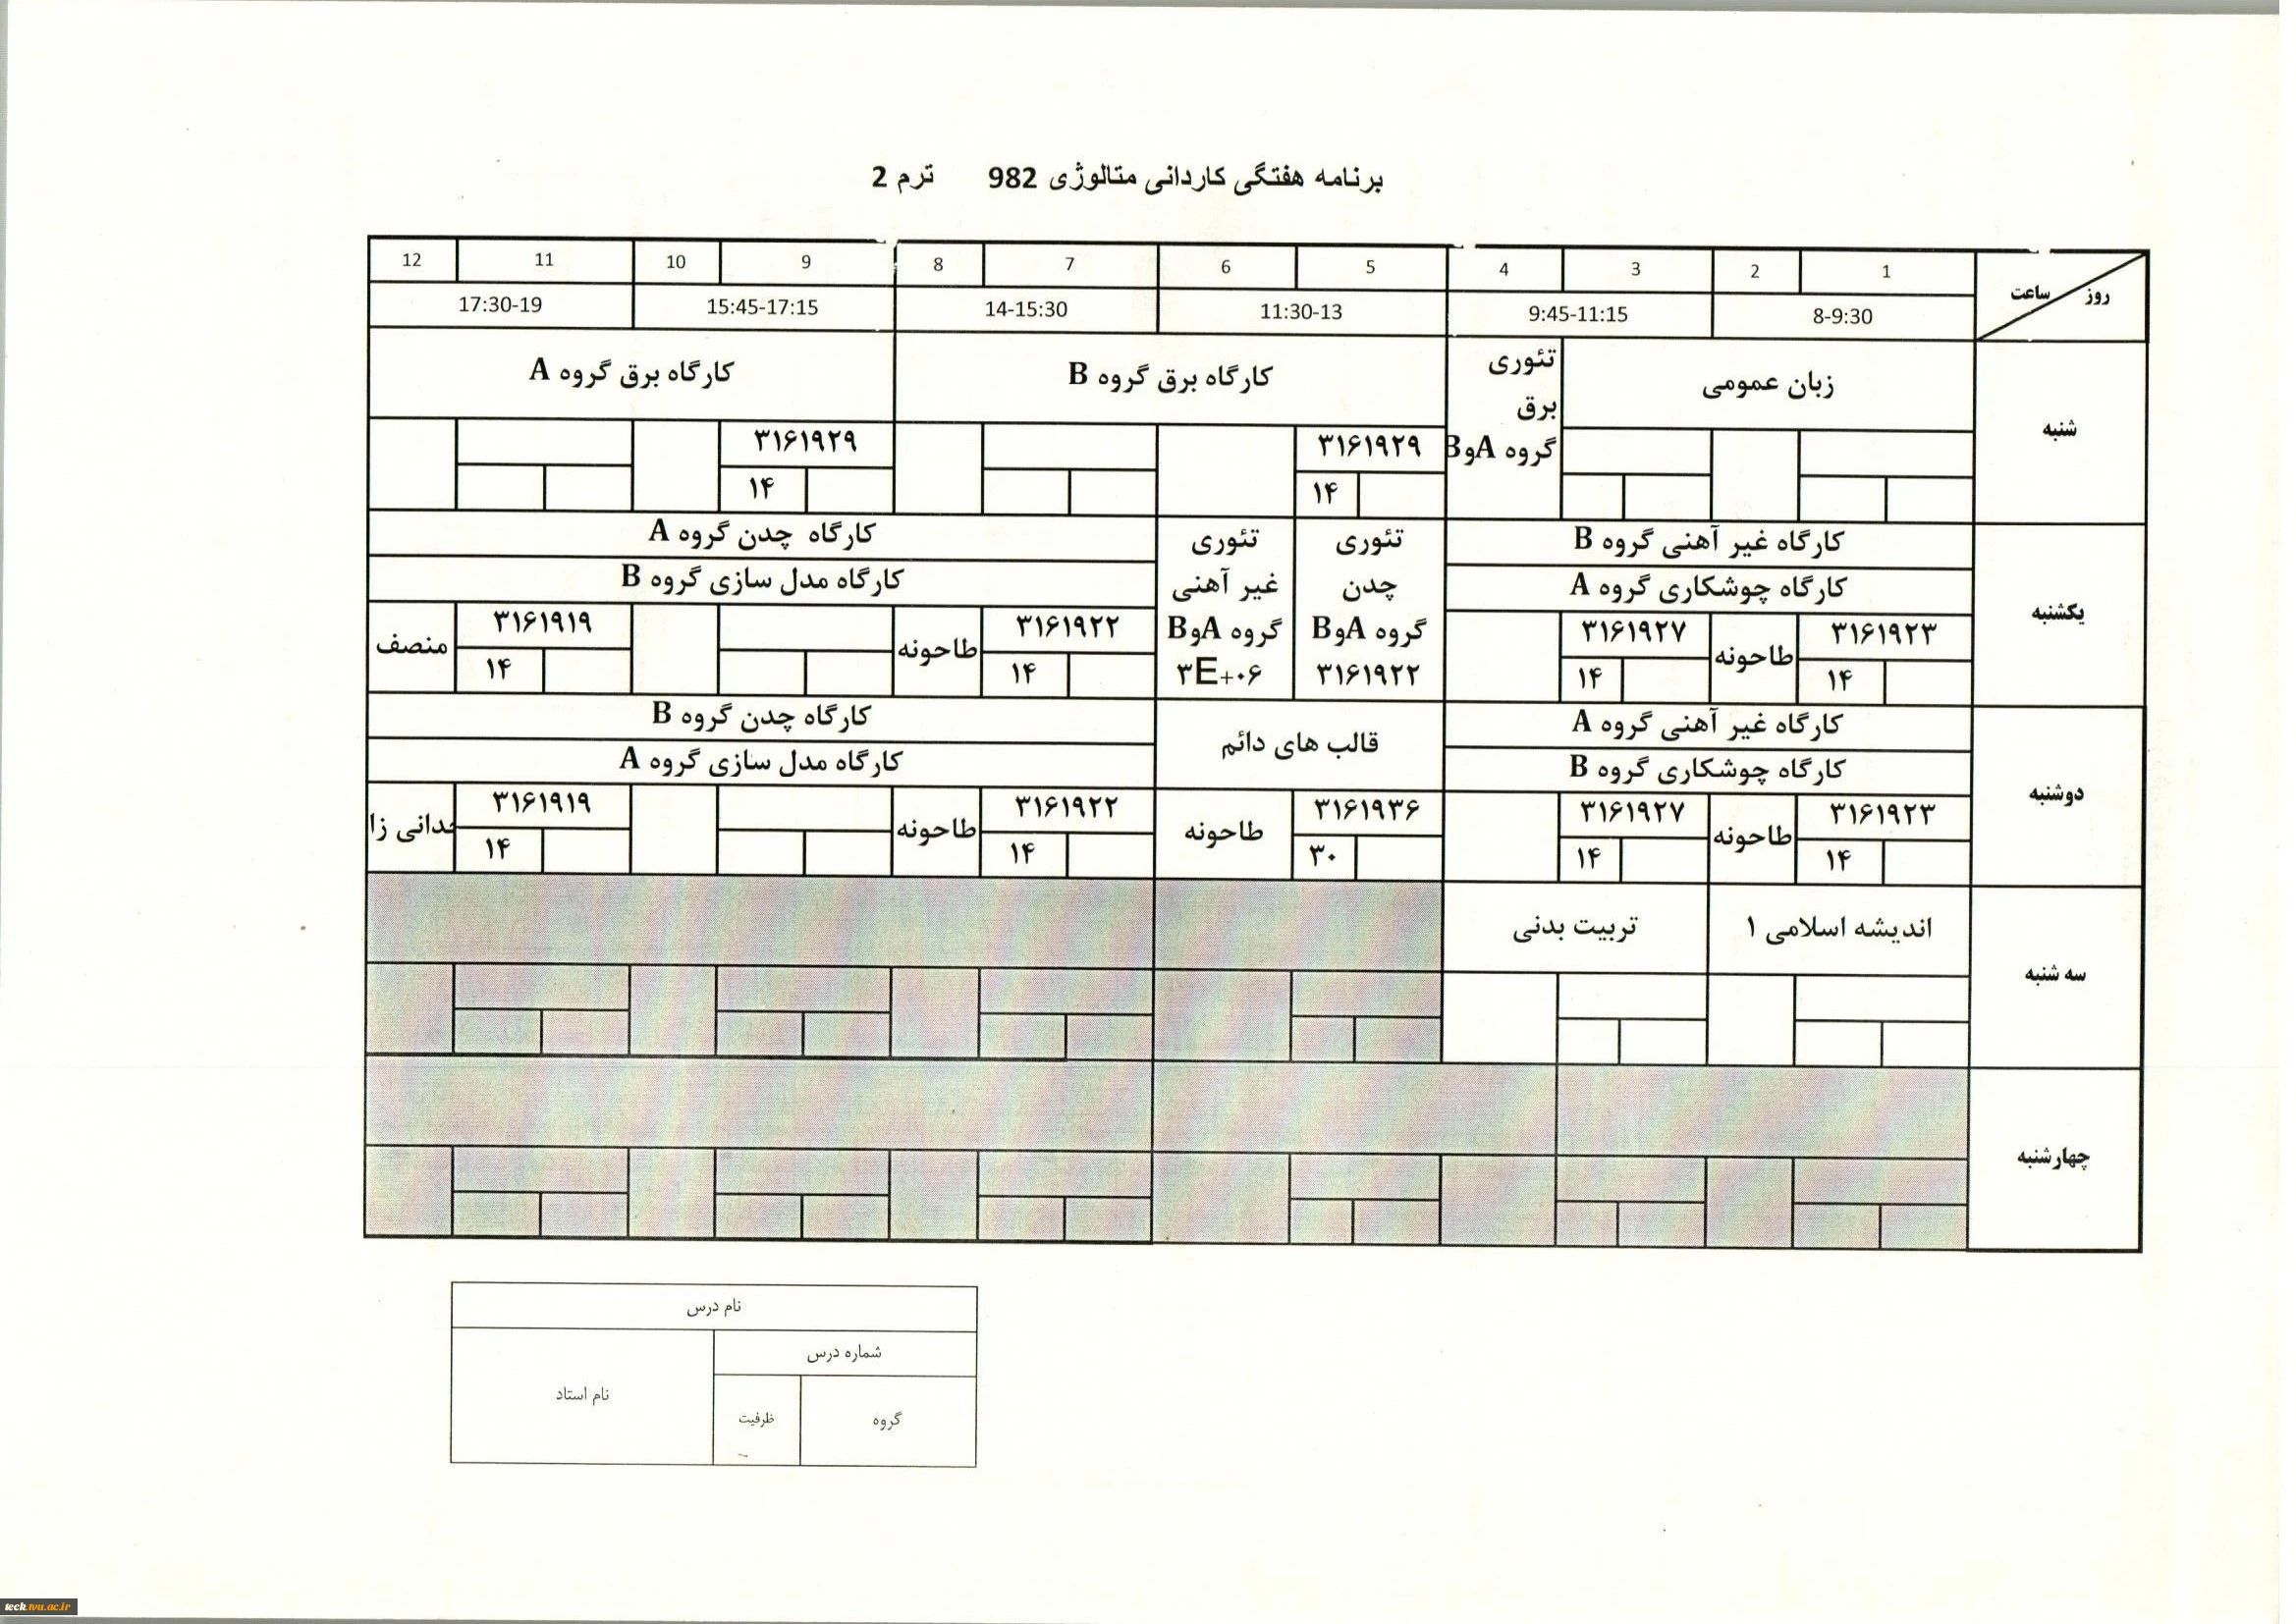 برنامه هفتگی کاردانی متالوژی 982 ترم 2
روز ساعت
1 2 3 4 5 6 7 8 9 10 11 12
8-9:30 9:45-11:15 11:30-13 14-15:30 15:45-17:15 17:30-19
شنبه
زبان عمومی
تئوری
برق
گروه AوB
کارگاه برق گروه B
۳۱۶۱۹۲۹
۱۴
کارگاه برق گروه A
۳۱۶۱۹۲۹
۱۴
یکشنبه
کارگاه غیر آهنی گروه B
کارگاه چوشکاری گروه A
۳۱۶۱۹۲۳ طاحونه ۳۱۶۱۹۲۷
۱۴ ۱۴
تئوری
چدن
گروه AوB
۳۱۶۱۹۲۲
تئوری
غیر آهنی
گروه AوB
۳E+۰۶
کارگاه چدن گروه A
کارگاه مدل سازی گروه B
۳۱۶۱۹۲۲ طاحونه ۳۱۶۱۹۱۹ منصف
۱۴ ۱۴
دوشنبه
کارگاه غیر آهنی گروه A
کارگاه چوشکاری گروه B
۳۱۶۱۹۲۳ طاحونه ۳۱۶۱۹۲۷
۱۴ ۱۴
قالب های دائم
۳۱۶۱۹۳۶ طاحونه
۳۰
کارگاه چدن گروه B
کارگاه مدل سازی گروه A
۳۱۶۱۹۲۲ طاحونه ۳۱۶۱۹۱۹
۱۴ ۱۴
سه شنبه
اندیشه اسلامی ۱
تربیت بدنی
چهارشنبه
نام درس
شماره درس
نام استاد
گروه ظرفیت
teck.tvu.ac.ir